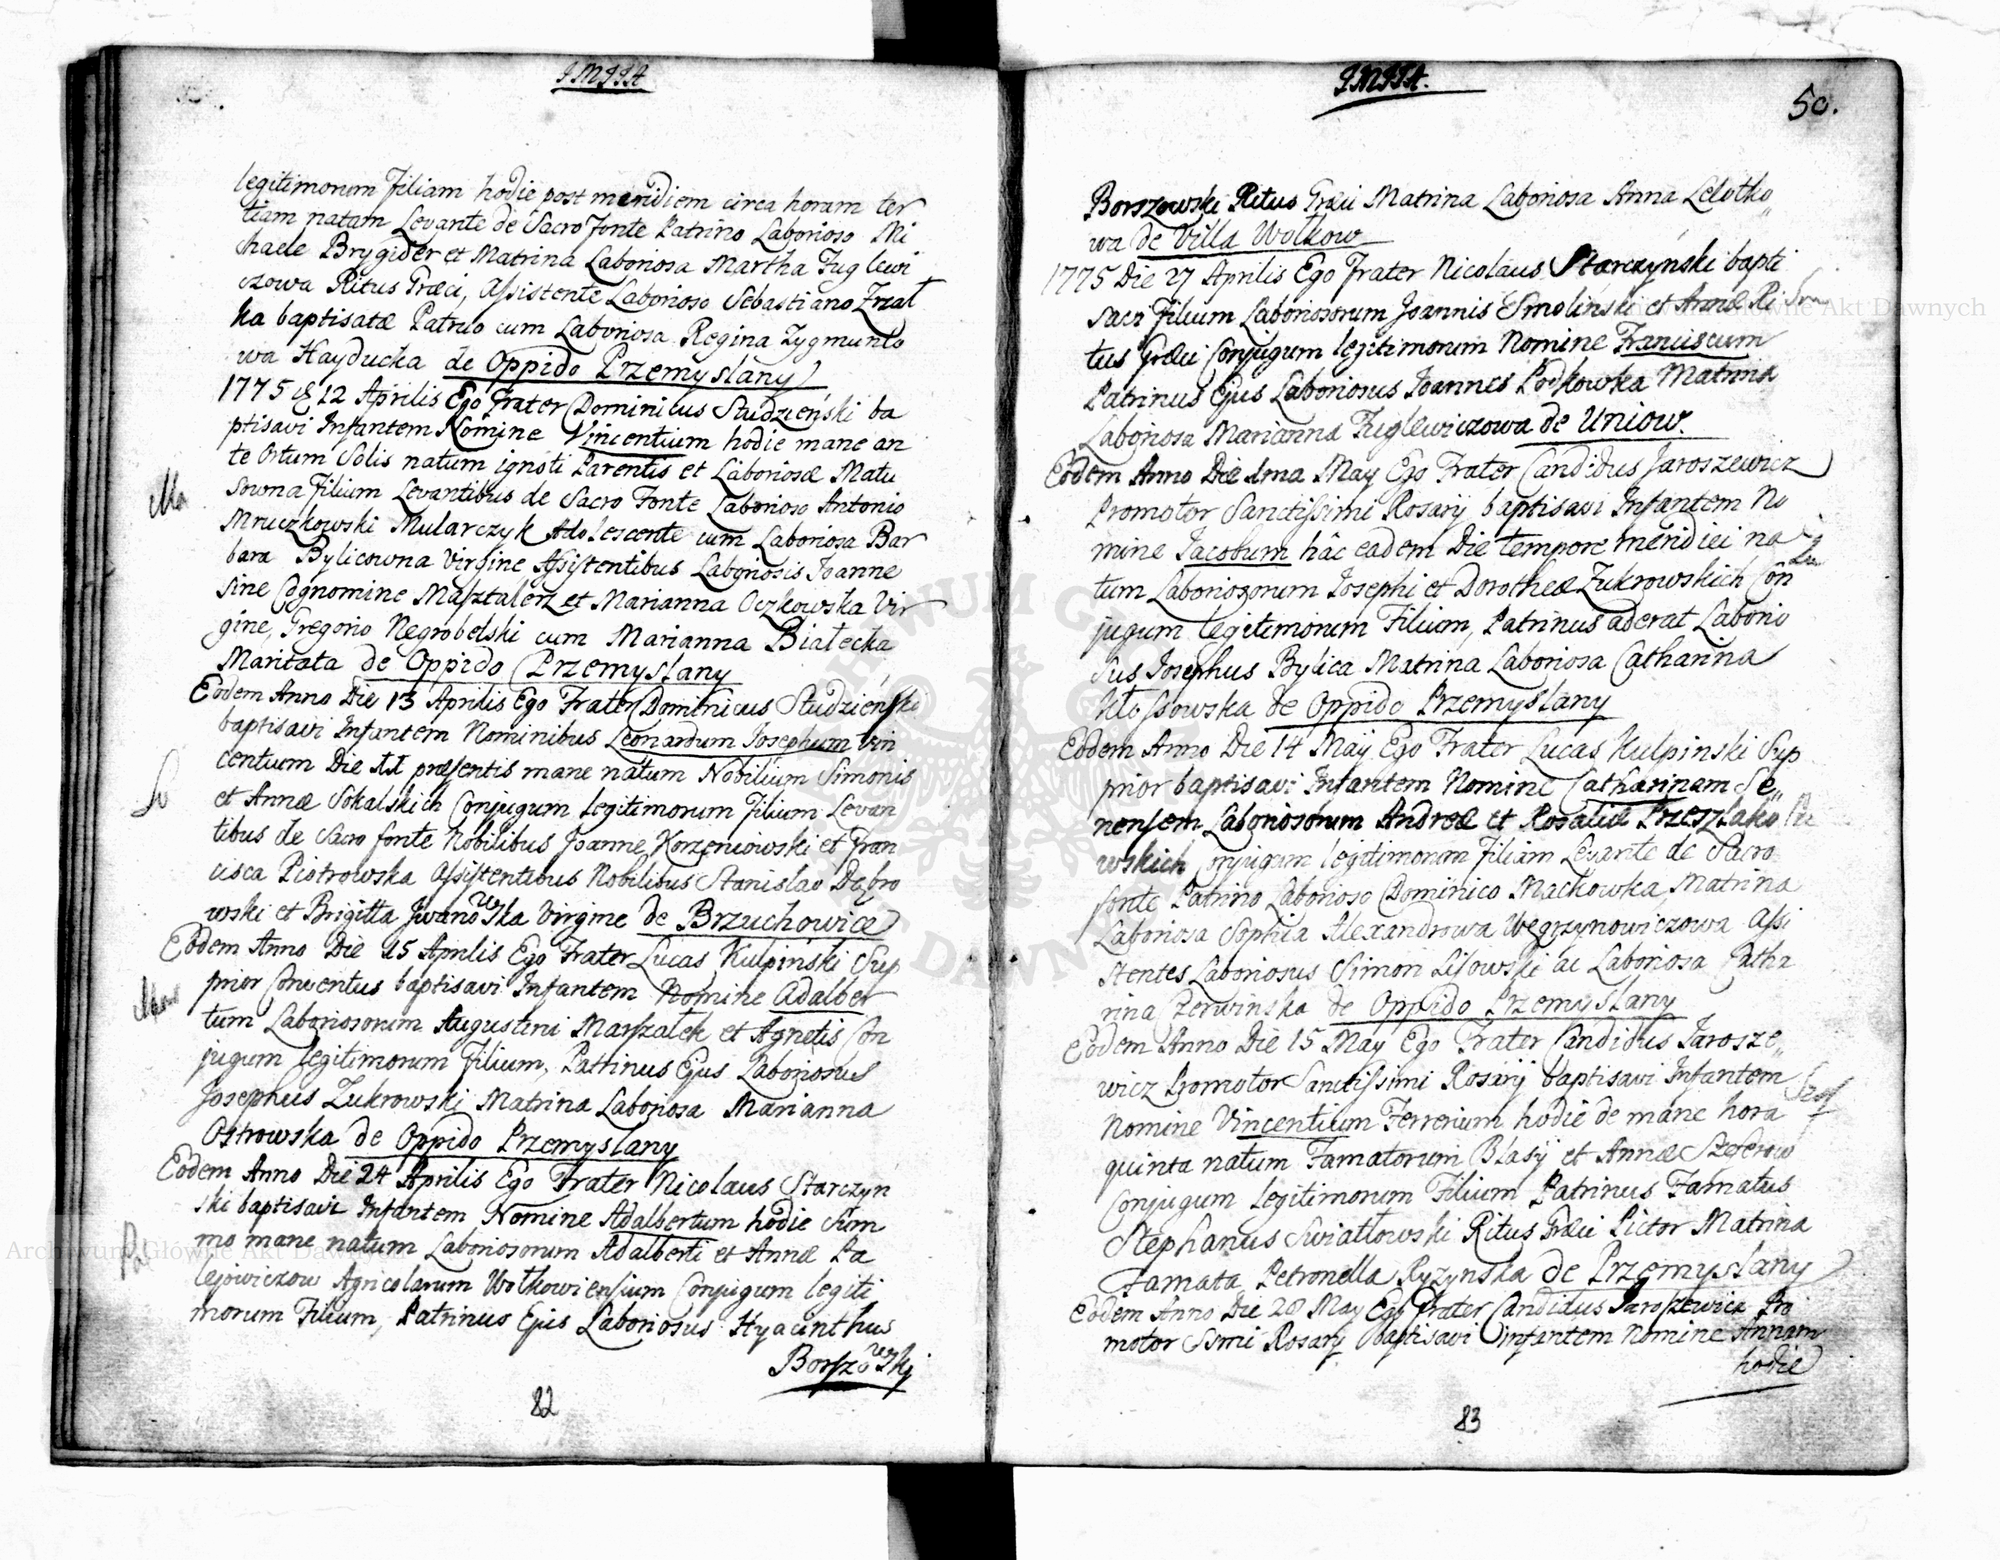 JMJJA
legitimorum Filiam hodie post meridiem circa horam ter
tiam natam Levante de Sacro Fonte Patrino Laborioso Mi
chaele Brygider et Matrina Laboriosa Martha Fuglewi
czowa Ritus Græci, Assistente Laborioso Sebastiano Zrzał
ka baptisatæ Patruo cum Laboriosa Regina Zygmunto
wa Hayducka de Oppido Przemyslany
1775 12 Aprilis Ego Frater Dominicus Studzieński ba
ptisavi Infantem Nomine Vincentium hodie mane an
te Ortum Solis natum ignoti Parentis et Laboriosæ Matu
sowna Filium Levantibus de Sacro Fonte Laborioso Antonio
Mruczkowski Mularczyk Adolescente cum Laboriosa Bar
bara Bylicowna Virgine Assistentibus Laboriosis Joanne
sine Cognomine Masztalerz et Marianna Oczkowska Vir
gine, Gregorio Negrobelski cum Marianna Białecka
Maritata de Oppido Przemyslany
Eodem Anno Die 13 Aprilis Ego Frater Dominicus Studzieński
baptisavi Infantem Nominibus Leonardum Josephum Vin
centium Die 11 præsentis mane natum Nobilium Simonis
et Annæ Sokalskich Conjugum legitimorum Filium Levan
tibus de Sacro fonte Nobilibus Joanne Korzeniowski et Fran
cisca Piotrowska Assistentibus Nobilibus Stanislao Dąbro
wski et Brigitta Jwanowska Virgine de Brzuchowice
Eodem Anno Die 15 Aprilis Ego Frater Lucas Kulpiński Sup
prior Conventus baptisavi Infantem Nomine Adalber
tum Laboriosorum Augustini Marszałek et Agnetis Con
jugum legitimorum Filium, Patrinus Ejus Laboriosus
Josephus Zukrowski Matrina Laboriosa Marianna
Ostrowska de Oppido Przemyslany
Eodem Anno Die 24 Aprilis Ego Frater Nicolaus Starczyn
ski baptisavi Infantem Nomine Adalbertum hodie sum
mo mane natum Laboriosorum Adalberti et Annæ Pa
lejowiczow Agricolarum Wołkowiensium Conjugum legiti
morum Filium, Patrinus Ejus Laboriosus Hyacinthus
Borszowski
82
JMJJA.
50.
Borszowski Ritus Græci Matrina Laboriosa Anna Lelotko„
wa de Villa Wołkow
1775 Die 27 Aprilis Ego Frater Nicolaus Starczyński bapti
savi Filium Laboriosorum Joannis Smolinski et Annæ Ri
tus Græci Conjugum legitimorum Nomine Franciscum
Patrinus Ejus Laboriosus Joannes Podkowka Matrina
Laboriosa Marianna Fuglewiczowa de Uniow.
Eodem Anno Die 1ma May Ego Frater Candidus Jaroszewicz
Promotor Sanctissimi Rosarij baptisavi Infantem No
mine Jacobum hâc eadem Die tempore meridiei na
tum Laboriosorum Josephi et Dorotheæ Zukrowskich Con
jugum legitimorum Filium, Patrinus aderat Laborio
sus Josephus Bylica Matrina Laboriosa Catharina
Kłossowska de Oppido Przemyslany
Eodem Anno Die 14 Maij Ego Frater Lucas Kulpinski Sup
prior baptisavi Infantem Nomine Catharinam Se„
nensem Laboriosorum Andreæ et Rosaliæ Przeszlako
wskich Conjugum legitimorum Filiam Levante de Sacro
fonte Patrino Laborioso Dominico Maćkowka, Matrina
Laboriosa Sophia Alexandrowa Węgrzynowiczowa Assi
stentes Laboriosus Simon Lisowski ac Laboriosa Catha
rina Perwinska de Oppido Przemyslany
Eodem Anno Die 15 May Ego Frater Candidus Jarosze„
wicz Promotor Sanctissimi Rosarij baptisavi Infantem
Nomine Vincentium Ferrerium hodie de mane hora
quinta natum Famatorum Blasij et Annæ Szeferow
Conjugum legitimorum Filium Patrinus Famatus
Stephanus Swiatłowski Ritus Græci Pictor Matrina
Famata Petronella Ryzynska de Przemyslany
Eodem Anno Die 28 May Ego Frater Candidus Jaroszewicz Pro
motor Ssmi Rosarij baptisavi Infantem Nomine Annam
hodie
83
Archiwum Główne Akt Dawnych